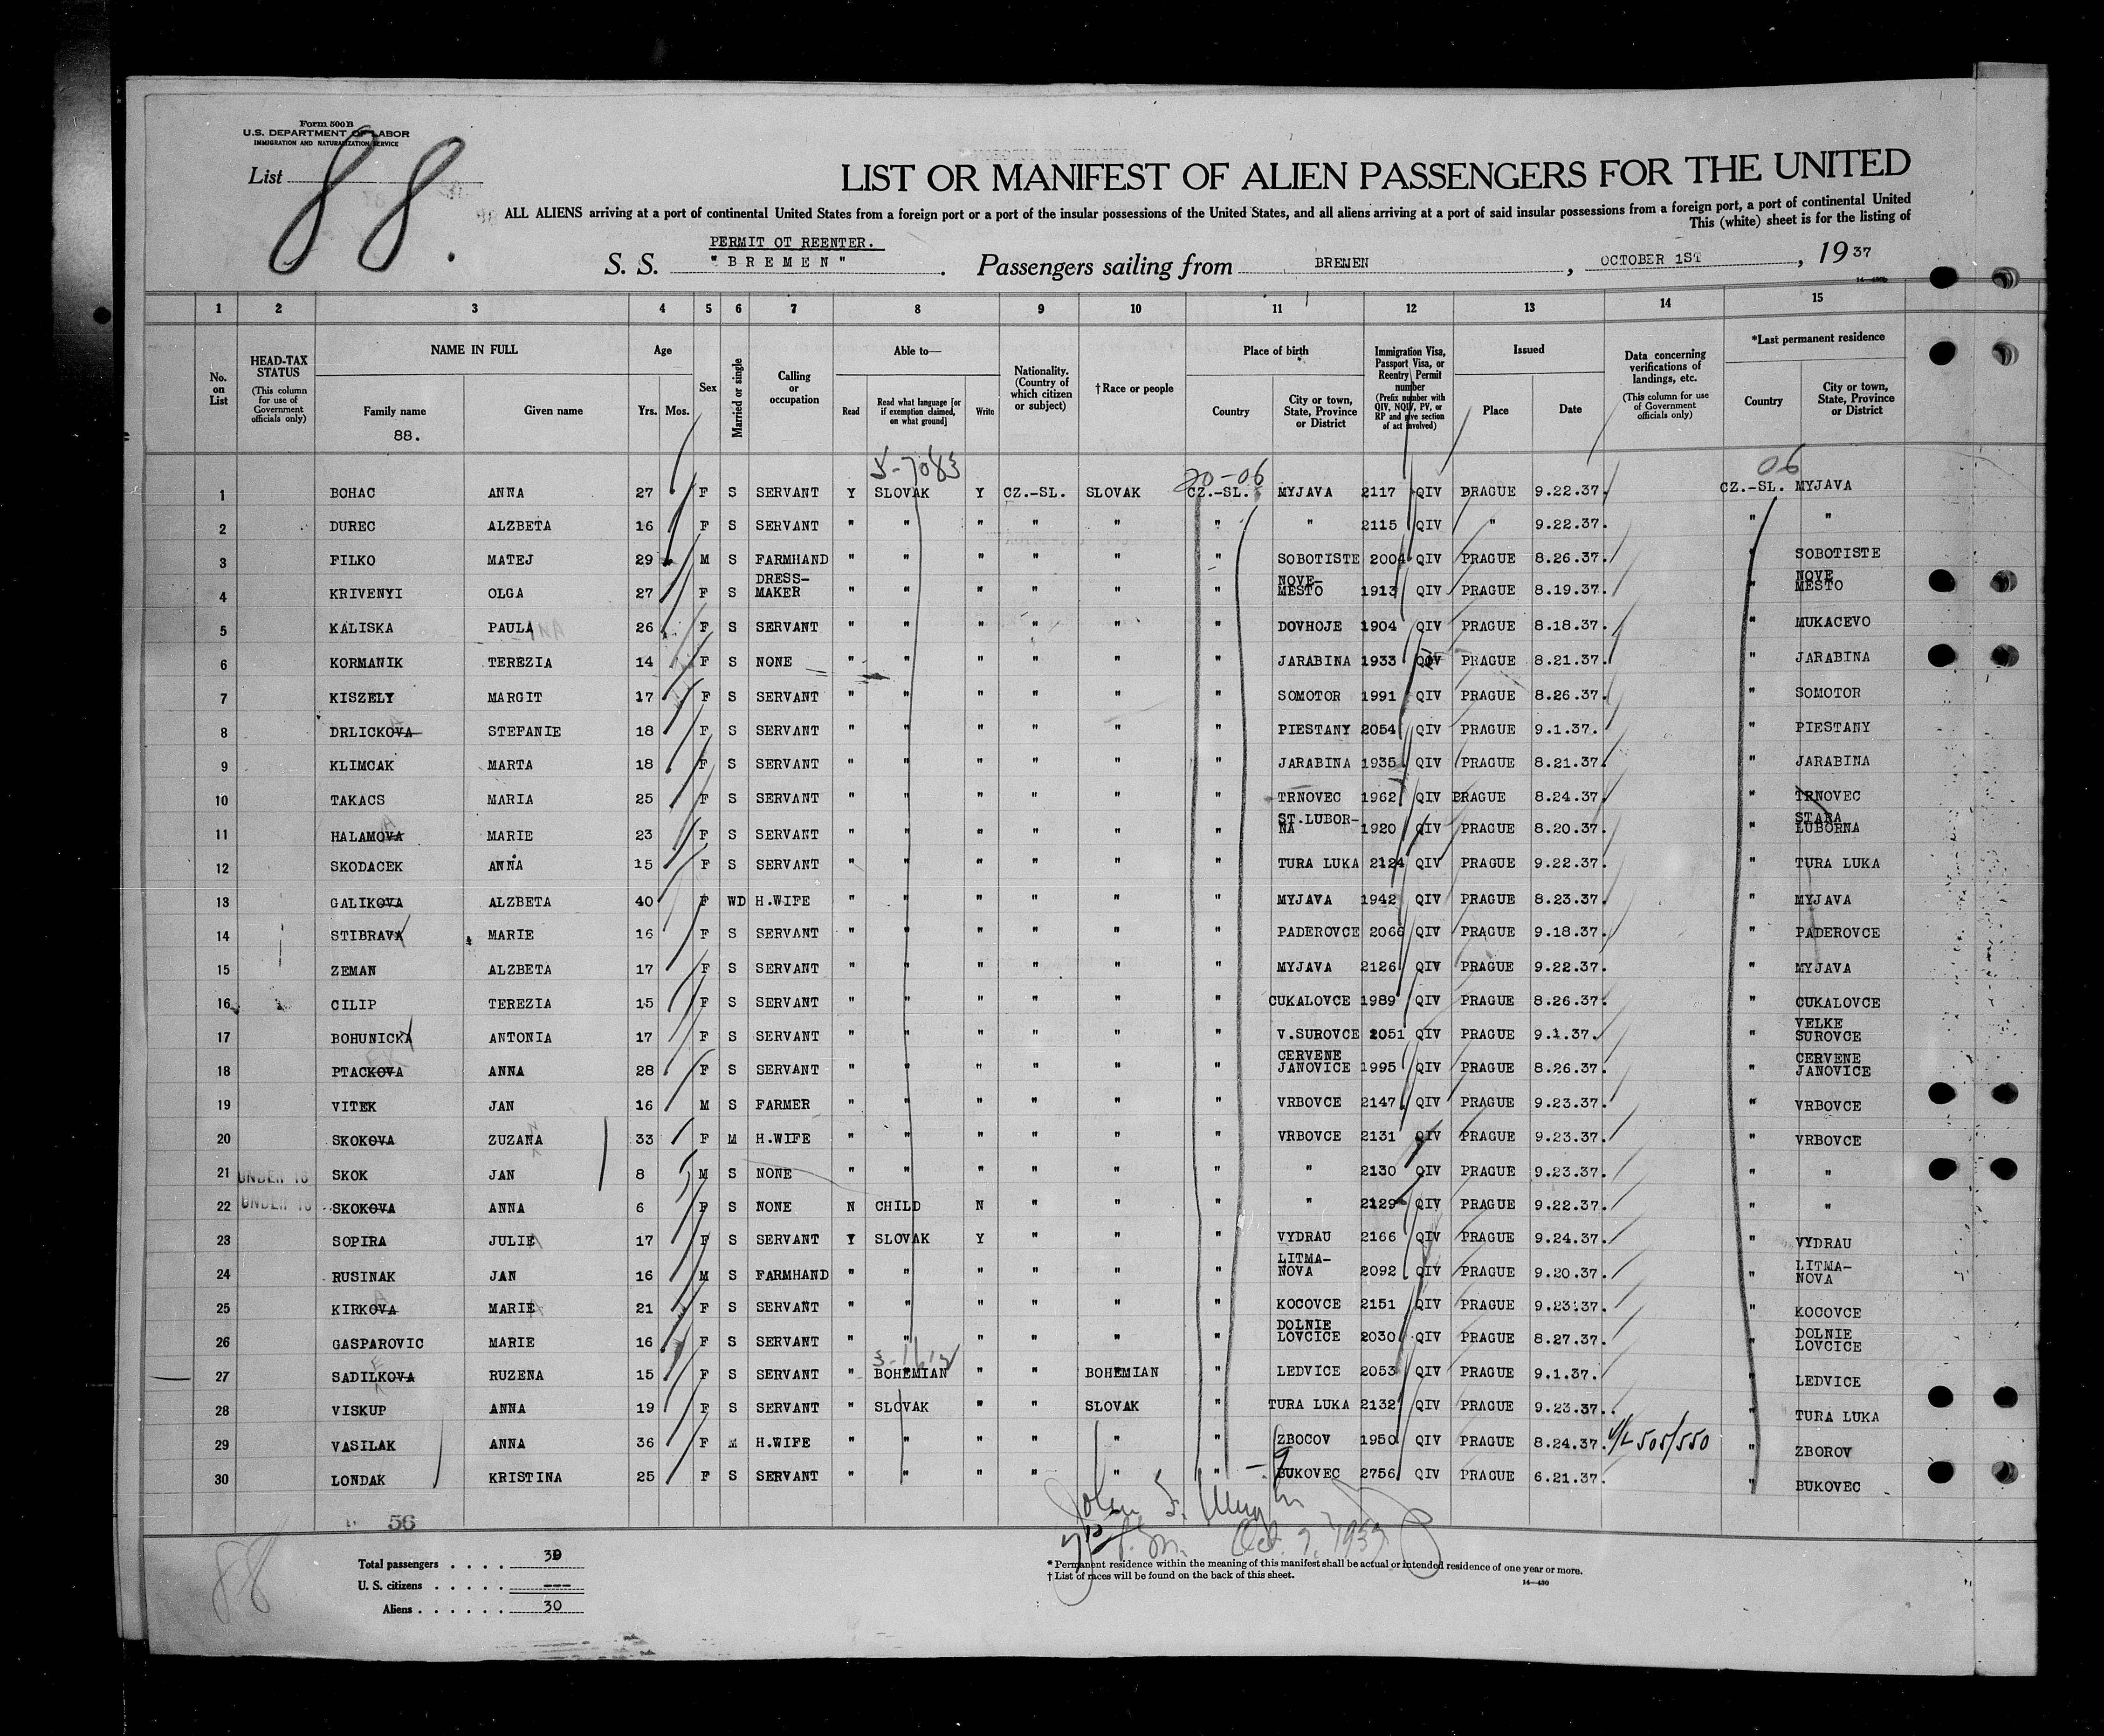 Form 500 B
U.S. DEPARTMENT OF LABOR
IMMIGRATION AND NATURALIZATION SERVICE
List 88.
LIST OR MANIFEST OF ALIEN PASSENGERS FOR THE UNITED
ALL ALIENS arriving at a port of continental United States from a foreign port or a port of the insular possessions of the United States, and all aliens arriving at a port of said insular possessions from a foreign port, a port of continental United
This (white) sheet is for the listing of
PERMIT OT REENTER.
S. S. "BREMEN". Passengers sailing from BREMEN, OCTOBER 1ST, 1937
1 2 3 4 5 6 7 8 9 10 11 12 13 14 15
No. on List
HEAD-TAX STATUS (This column for use of Government officials only)
NAME IN FULL
Family name
88.
Given name
Age
Yrs. Mos.
Sex
Married or single
Calling or occupation
Able to—
Read
Read what language [or if exemption claimed, on what ground]
Write
Nationality. (Country of which citizen or subject)
† Race or people
Place of birth
Country
City or town, State, Province or District
Immigration Visa, Passport Visa, or Reentry Permit number (Prefix number with QIV, NQIV, PV, or RP and give section of act involved)
Issued
Place
Date
Data concerning verifications of landings, etc. (This column for use of Government officials only)
*Last permanent residence
Country
City or town, State, Province or District
5-7083 20-06 06
1 BOHAC ANNA 27 F S SERVANT Y SLOVAK Y CZ.-SL. SLOVAK CZ.-SL. MYJAVA 2117 QIV PRAGUE 9.22.37. CZ.-SL. MYJAVA
2 DUREC ALZBETA 16 F S SERVANT " " " " " " " 2115 QIV " 9.22.37. " "
3 FILKO MATEJ 29 M S FARMHAND " " " " " " SOBOTISTE 2004 QIV PRAGUE 8.26.37. " SOBOTISTE
4 KRIVENYI OLGA 27 F S DRESS-MAKER " " " " " " NOVE-MESTO 1913 QIV PRAGUE 8.19.37. " NOVE MESTO
5 KALISKA PAULA 26 F S SERVANT " " " " " " DOVHOJE 1904 QIV PRAGUE 8.18.37. " MUKACEVO
6 KORMANIK TEREZIA 14 F S NONE " " " " " " JARABINA 1933 QIV PRAGUE 8.21.37. " JARABINA
7 KISZELY MARGIT 17 F S SERVANT " " " " " " SOMOTOR 1991 QIV PRAGUE 8.26.37. " SOMOTOR
8 DRLICKOVA STEFANIE 18 F S SERVANT " " " " " " PIESTANY 2054 QIV PRAGUE 9.1.37. " PIESTANY
9 KLIMCAK MARTA 18 F S SERVANT " " " " " " JARABINA 1935 QIV PRAGUE 8.21.37. " JARABINA
10 TAKACS MARIA 25 F S SERVANT " " " " " " TRNOVEC 1962 QIV PRAGUE 8.24.37. " TRNOVEC
11 HALAMOVA MARIE 23 F S SERVANT " " " " " " ST.LUBOR-NA 1920 QIV PRAGUE 8.20.37. " STARA LUBORNA
12 SKODACEK ANNA 15 F S SERVANT " " " " " " TURA LUKA 2124 QIV PRAGUE 9.22.37. " TURA LUKA
13 GALIKOVA ALZBETA 40 F WD H.WIFE " " " " " " MYJAVA 1942 QIV PRAGUE 8.23.37. " MYJAVA
14 STIBRAVA MARIE 16 F S SERVANT " " " " " " PADEROVCE 2066 QIV PRAGUE 9.18.37. " PADEROVCE
15 ZEMAN ALZBETA 17 F S SERVANT " " " " " " MYJAVA 2126 QIV PRAGUE 9.22.37. " MYJAVA
16 CILIP TEREZIA 15 F S SERVANT " " " " " " CUKALOVCE 1989 QIV PRAGUE 8.26.37. " CUKALOVCE
17 BOHUNICKA ANTONIA 17 F S SERVANT " " " " " " V.SUROVCE 2051 QIV PRAGUE 9.1.37. " VELKE SUROVCE
18 PTACKOVA ANNA 28 F S SERVANT " " " " " " CERVENE JANOVICE 1995 QIV PRAGUE 8.26.37. " CERVENE JANOVICE
19 VITEK JAN 16 M S FARMER " " " " " " VRBOVCE 2147 QIV PRAGUE 9.23.37. " VRBOVCE
20 SKOKOVA ZUZANA 33 F M H.WIFE " " " " " " VRBOVCE 2131 QIV PRAGUE 9.23.37. " VRBOVCE
21 UNDER 16 SKOK JAN 8 M S NONE " " " " " " " 2130 QIV PRAGUE 9.23.37. " "
22 UNDER 16 SKOKOVA ANNA 6 F S NONE N CHILD N " " " " 2129 QIV PRAGUE 9.22.37. " "
23 SOPIRA JULIE 17 F S SERVANT Y SLOVAK Y " " " VYDRAU 2166 QIV PRAGUE 9.24.37. " VYDRAU
24 RUSINAK JAN 16 M S FARMHAND " " " " " " LITMA-NOVA 2092 QIV PRAGUE 9.20.37. " LITMA-NOVA
25 KIRKOVA MARIE 21 F S SERVANT " " " " " " KOCOVCE 2151 QIV PRAGUE 9.23.37. " KOCOVCE
26 GASPAROVIC MARIE 16 F S SERVANT " " " " " " DOLNIE LOVCICE 2030 QIV PRAGUE 8.27.37. " DOLNIE LOVCICE
27 SADILKOVA RUZENA 15 F S SERVANT " BOHEMIAN " " BOHEMIAN " LEDVICE 2053 QIV PRAGUE 9.1.37. " LEDVICE
28 VISKUP ANNA 19 F S SERVANT " SLOVAK " " SLOVAK " TURA LUKA 2132 QIV PRAGUE 9.23.37. " TURA LUKA
29 VASILAK ANNA 36 F M H.WIFE " " " " " " ZBOCOV 1950 QIV PRAGUE 8.24.37. V/L 505/550 " ZBOROV
30 LONDAK KRISTINA 25 F S SERVANT " " " " " " BUKOVEC 2756 QIV PRAGUE 6.21.37. " BUKOVEC
56
88
Total passengers . . . . 30
U. S. citizens . . . . . ---
Aliens . . . . . . 30
John F.
Oct. 7, 1937
* Permanent residence within the meaning of this manifest shall be actual or intended residence of one year or more.
† List of races will be found on the back of this sheet.
14—430